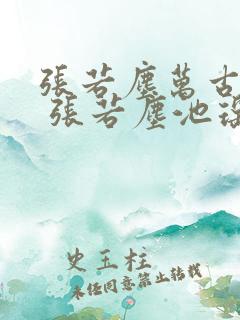 張若塵萬古
張若塵池
史玉柱
未经同意禁止转载